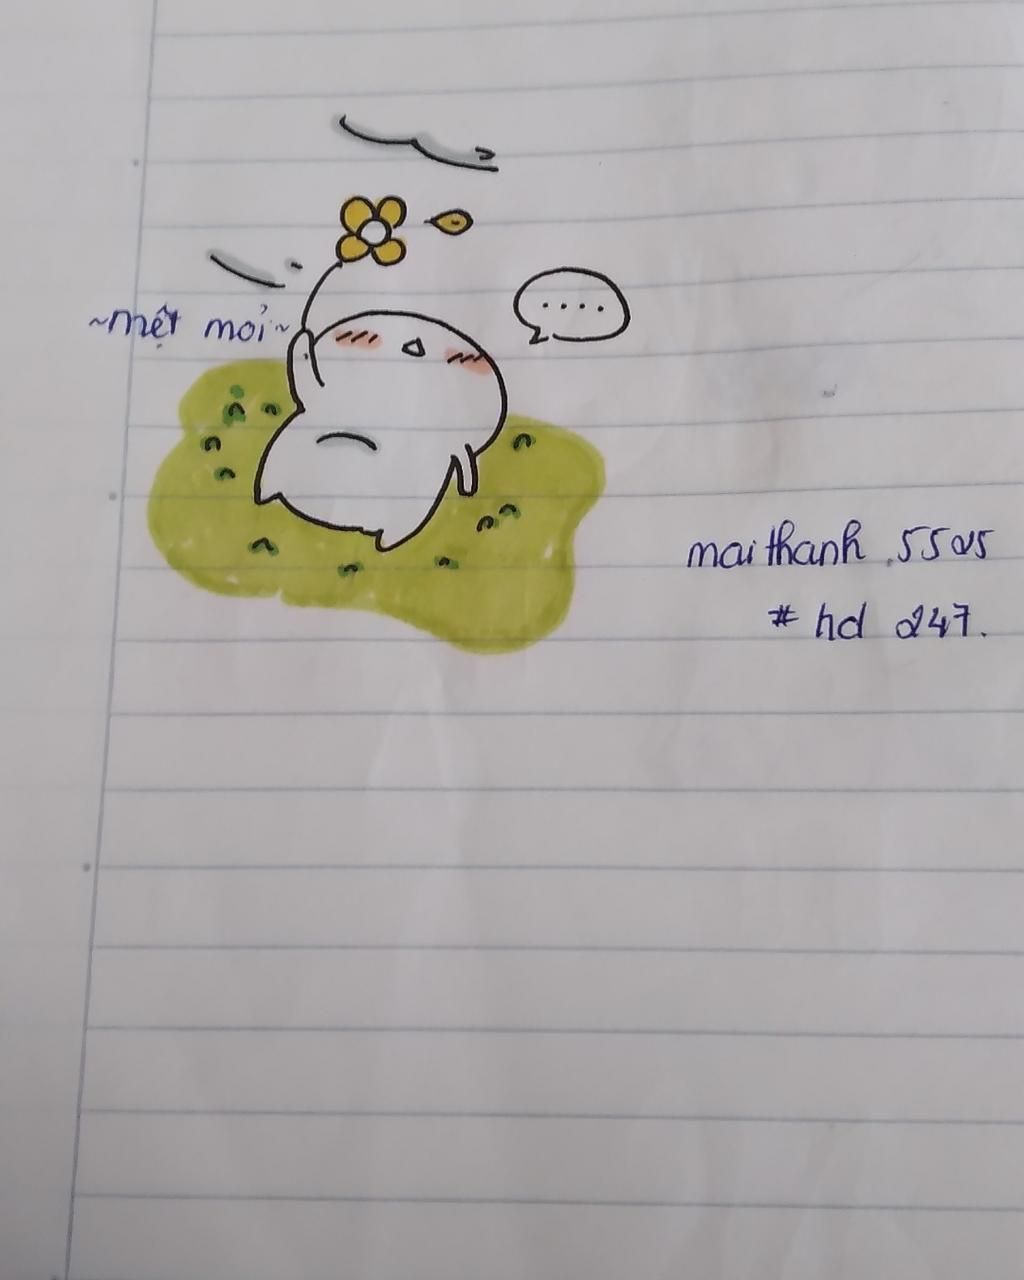 ~mệt mỏi~
.....
maithanh.5525
# hd 247.